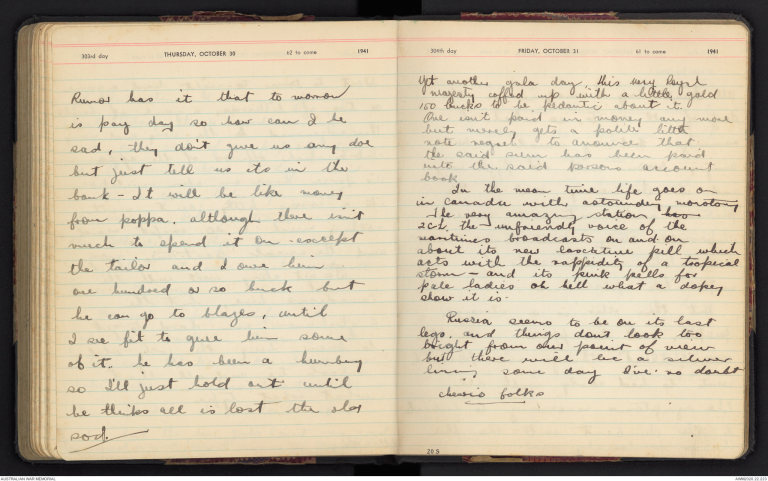 303rd day THURSDAY, OCTOBER 30 62 to come 1941
Rumor has it that to morrow
is pay day so how can I be
sad, they don't give us any doe
but just tell us its in the
bank - It will be like money
from poppa. although there isn't
much to spend it on - except
the tailor and I owe him
one hundred or so buck but
he can go to blazes, until
I see fit to give him some
of it. he has been a humbug
so I'll just hold out until
he thinks all is lost the old
sod.
304th day FRIDAY, OCTOBER 31 61 to come 1941
Yet another gala day, this very
majesty coffed up with a little gold
150 bucks to be pedantic about it.
One isn't paid in money any more
but merely gets a polite little
note to announce that
the said sum has been paid
into the said persons account
book
In the mean time life goes on
in Canada with astounding monotony
The very amazing station has
2CH, the unfriendly voice of the
maritimes broadcasts on and on
about its new laxative pill which
acts with the rappidity of a tropical
storm - and its pink pills for
pale ladies oh hell what a dopey
show it is.
Russia seems to be on its last
legs and things don't look too
bright from our point of view
but there will be a silver
lining some day I've no doubt
cheerio folks
20 S
AUSTRALIAN WAR MEMORIAL